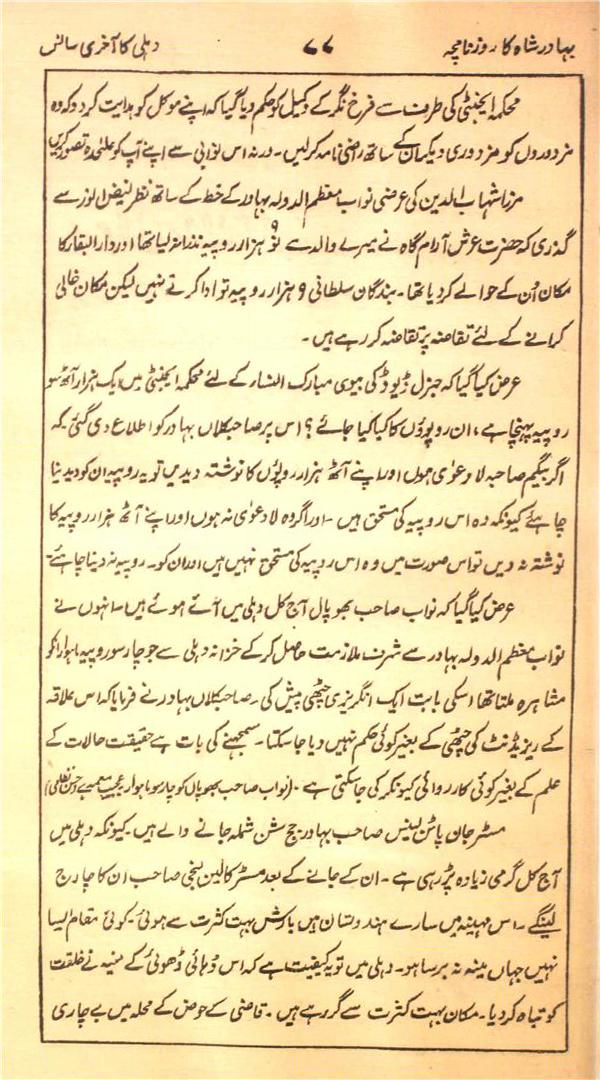 بہادر شاہ کا روزنامچہ ۷۷ دہلی کا آخری سانس
محکمہ ایجنٹی کی طرف سے فرخ نگر کے وکیل کو حکم دیا گیا کہ اپنے موکل کو ہدایت کر دو کہ وہ
مزدوروں کو مزدوری دیکر ان کے ساتھ راضی نامہ کر لیں۔ ورنہ اس نوابی سے اپنے آپ کو علیحدہ تصور کریں
مرزا شہاب الدین کی عرضی نواب معظم الدولہ بہادر کے خط کے ساتھ نظر فیض انور سے
گذری کہ حضرت عرش آرام گاہ نے میرے والد سے نو ۹ ہزار روپیہ نذرانہ لیا تھا اور دار البقار کا
مکان اُن کے حوالے کر دیا تھا۔ بندگان سلطانی ۹ ہزار روپیہ تو ادا کرتے نہیں لیکن مکان خالی
کرانے کے لئے تقاضہ پر تقاضہ کر رہے ہیں۔
عرض کیا گیا کہ جنرل ڈیوڈ کی بیوی مبارک النسار کے لئے محکمہ ایجنٹی میں ایک ہزار آٹھ سو
روپیہ پہنچا ہے، ان روپوؤں کا کیا کیا جائے؟ اس پر صاحبکلاں بہادر کو اطلاع دی گئی کہ
اگر بیگم صاحبہ لا دعوٰی ہوں اور اپنے آٹھ ہزار روپوؤں کا نوشتہ دیدیں تو یہ روپیہ ان کو دیدینا
چاہئے کیونکہ وہ اس روپیہ کی مستحق ہیں۔ اور اگر وہ لا دعوٰی نہ ہوں اور اپنے آٹھ ہزار روپیہ کا
نوشتہ نہ دیں تو اس صورت میں وہ اس روپیہ کی مستحق نہیں ہیں اور ان کو۔ روپیہ نہ دینا چاہئے۔
عرض کیا گیا کہ نواب صاحب بھوپال آج کل دہلی میں آئے ہوئے ہیں۔ انہوں نے
نواب معظم الدولہ بہادر سے شرف ملازمت حاصل کر کے خزانہ دہلی سے جو چار سو روپیہ ماہوار انکو
مشاہرہ ملتا تھا اسکی بابت ایک انگریزی چٹھی پیش کی۔ صاحبکلاں بہادر نے فرمایا کہ اس علاقہ
کے ریزیڈنٹ کی چٹھی کے بغیر کوئی حکم نہیں دیا جا سکتا۔ سمجھنے کی بات ہے حقیقت حالات کے
علم کے بغیر کوئی کارروائی کیونکر کی جاسکتی ہے۔ (نواب صاحب بھوپال کو چار سو ماہوار عجیب معمہ ہے حسن نظامی)
مسٹر جان پاٹن لینس صاحب بہادر جج سشن شملہ جانے والے ہیں۔ کیونکہ دہلی میں
آج کل گرمی زیادہ پڑ رہی ہے۔ ان کے جانے کے بعد مسٹر کالین صاحب ان کا چارج
لینگے۔ اس مہینہ میں سارے ہندوستان میں بارش بہت کثرت سے ہوئی۔ کوئی مقام ایسا
نہیں جہاں مینہ نہ برسا ہو۔ دہلی میں تو یہ کیفیت ہے کہ اس دُہائی ڈھوئی کے مینہ نے خلقت
کو تباہ کر دیا۔ مکان بہت کثرت سے گر رہے ہیں۔ قاضی کے حوض کے محلہ میں بے چاری